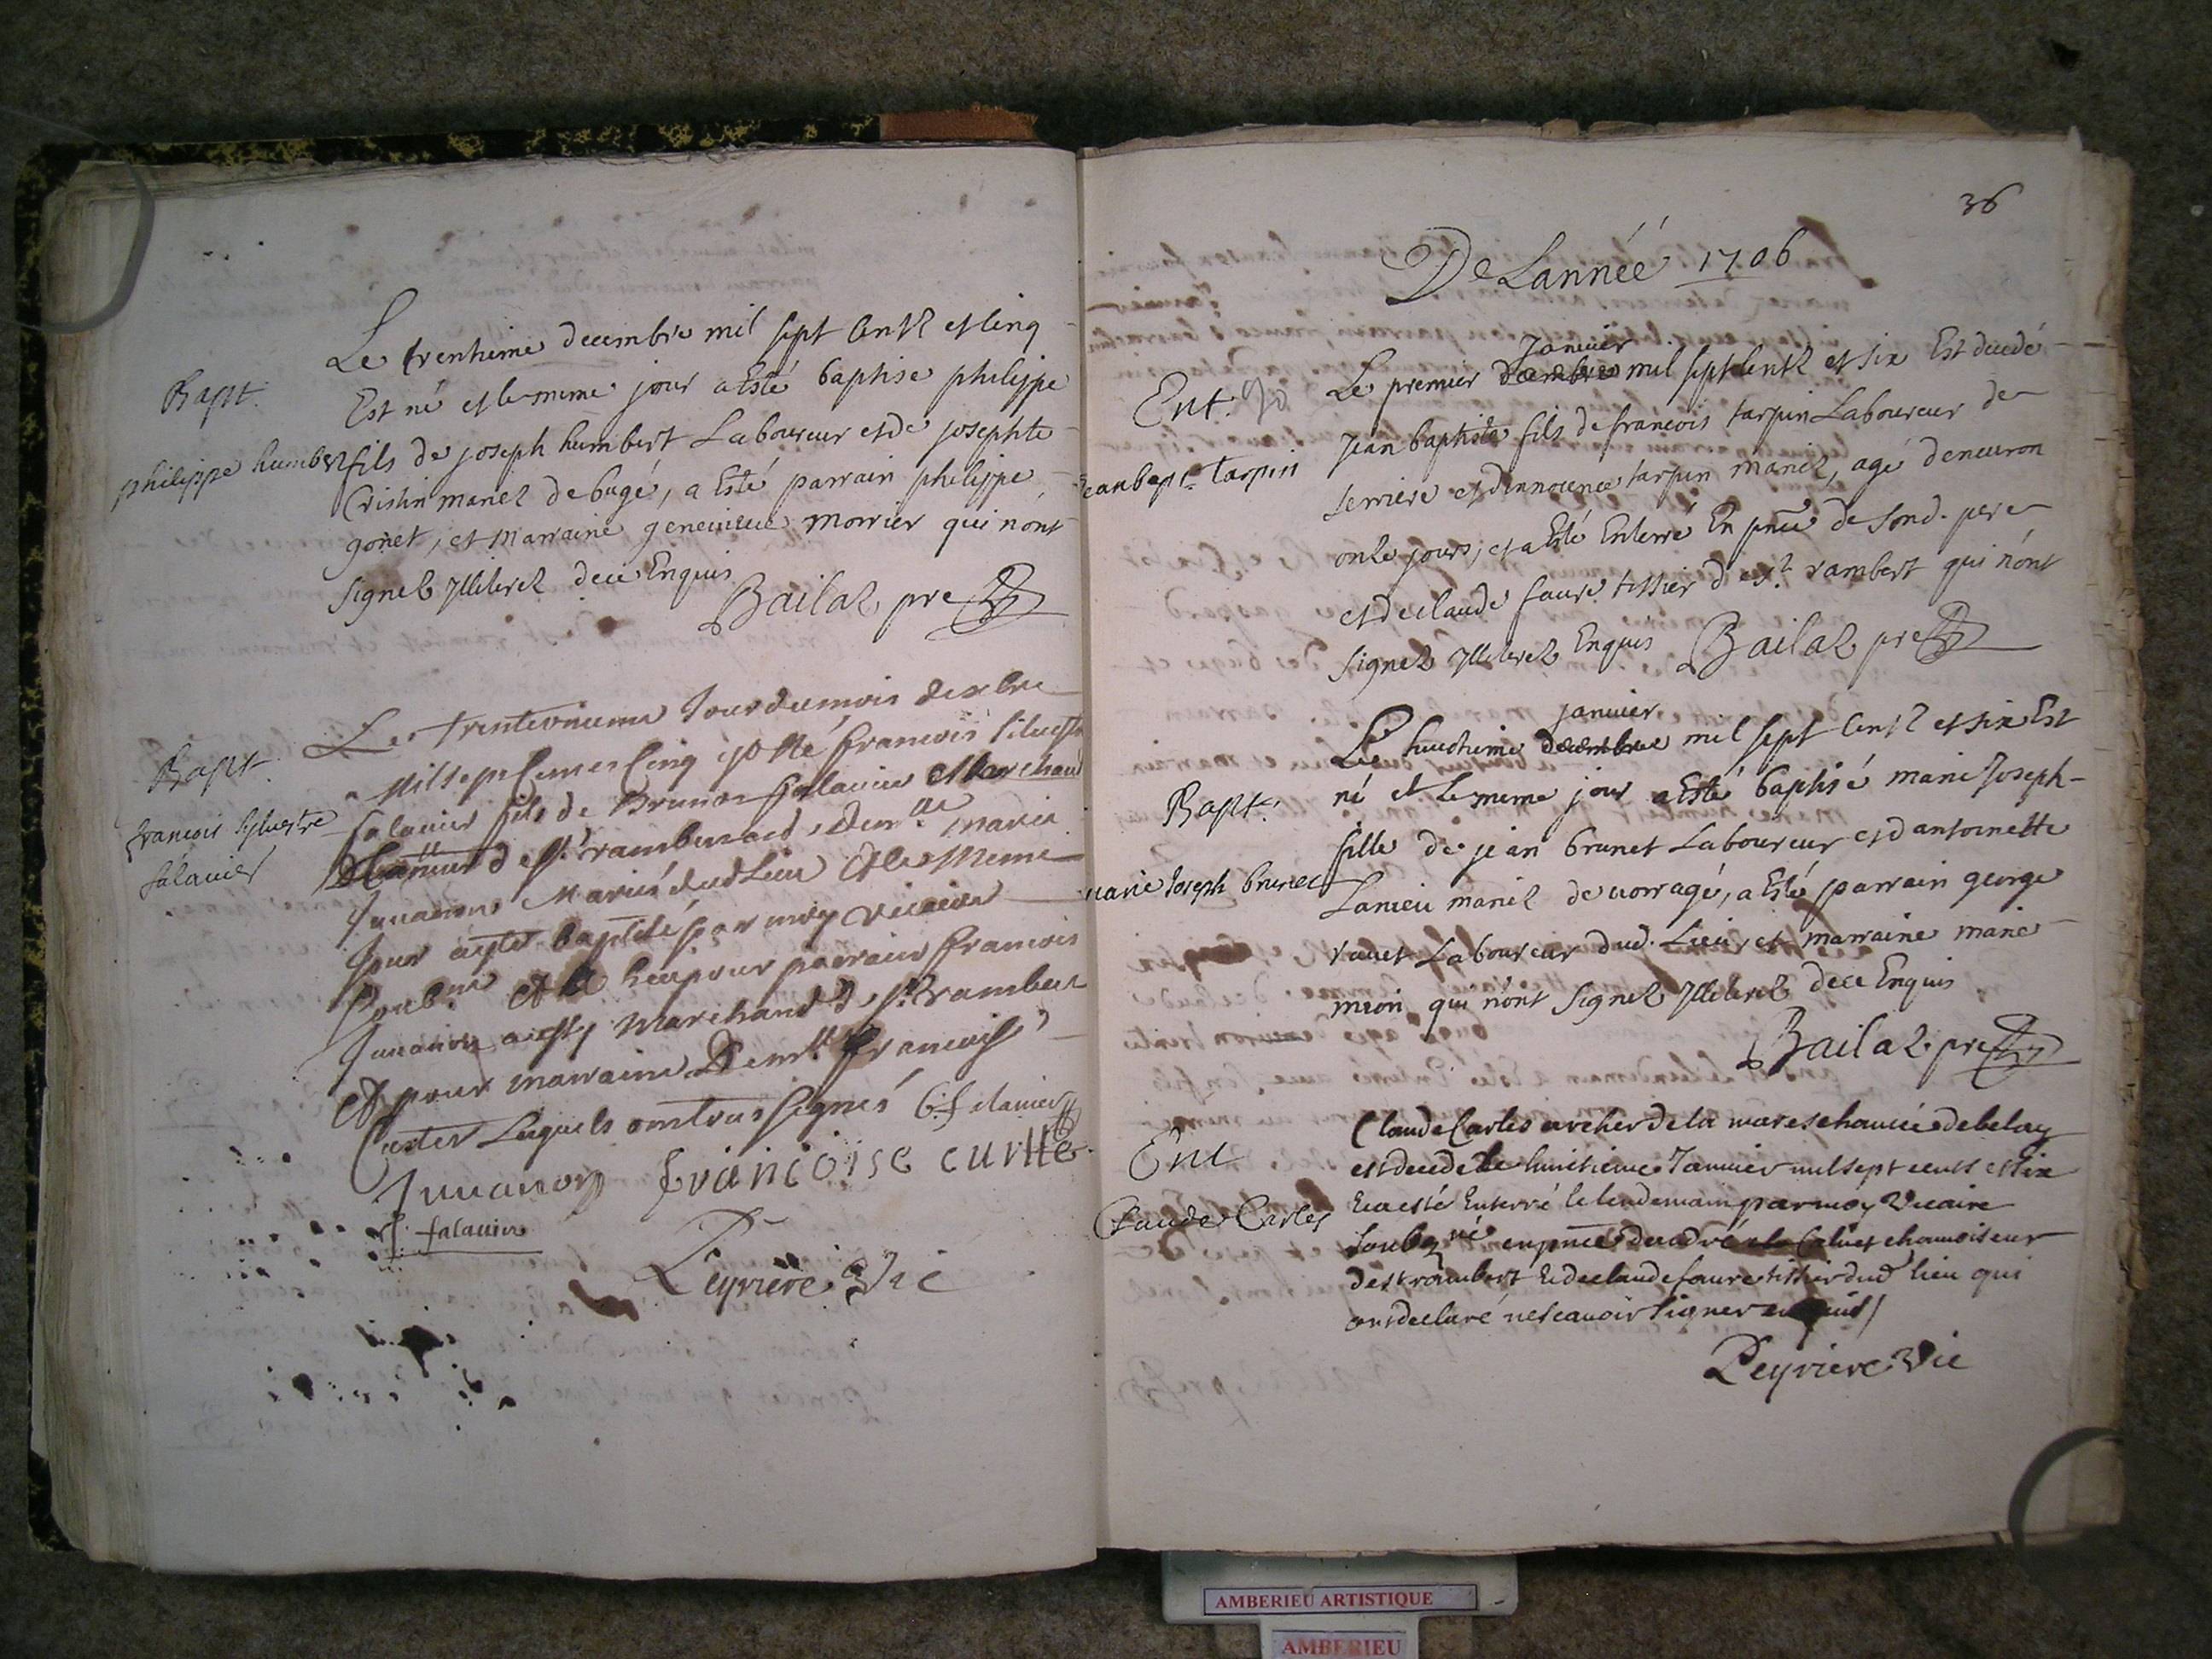 Bapt.
philippe humbert
Le trentieme decembre mil sept centz et cinq
Est né et le meme jour a Esté baptise philippe
fils de joseph humbert Laboureur et de josephte
Cristin mariez de bugé, a Esté parrain philippe
gonet, et marraine genevieve morrier qui n'ont
signez Illeterez de ce Enquis
Bailaz pre
Bapt.
francois sylvestre
salavier
Le trentevnieme Jour du mois de xbre
Mil sept Cents et Cinq est né francois silvestre
salavier fils de Bruno salavier Marchand
de st rambert et de dem.lle marie
Juuanon Mariés dud Lieu et le Meme
Jour a esté baptisé par moy vicaire
soub.né et a heu pour parrain francois
Juuanon aussy Marchand de st Rambert
Et pour marraine Dem.lle francoise
Curtet Lesquels ont tous signés B. salavier
Juuanon francoise curtte
f. salavier
Peyriere Vic
36
De Lannéé 1706
Ent.
Jean bapt.e tarpin
Janvier
Le premier decembre mil sept centz et six Est decedé
Jean baptiste fils de francois tarpin Laboureur de
serriere et d'innocence tarpin mariez, agé denviron
onze jours, et a Esté Enterré En pnce de sond. pere
et de claude faure tissier de st rambert qui n'ont
signez Illeterez Enquis Bailaz pre
Bapt.
marie Joseph brunet
janvier
Le huictieme decembre mil sept centz et six Est
né et le meme jour a Esté baptisé marie Joseph
fille de jean brunet Laboureur et d antoinette
Lanieu mariez de vorragé, a Esté parrain george
ravet Laboureur dud. Lieu, et marraine marie
mion qui n'ont signez Illeterez de ce Enquis
Bailaz pre
Ent
Claude Carles
Claude Carles archer de la mareschaucée de belay
est decedé le huictieme Janvier mil sept cents et six
et a esté Enterré le lendemain par moy Vicaire
soubz.né en pnce d'andré Caluet chamoiseur
de st rambert et de claude faure tissier dud lieu qui
ont declaré ne scavoir signer enquis
Peyriere Vic
AMBERIEU ARTISTIQUE
AMBERIEU